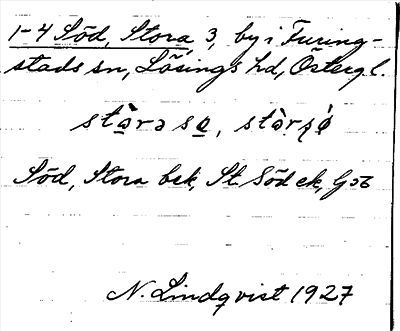 1-4 Söd, Stora 3, by i Furing-
stads sn, Lösings hd, Östergl.
Söd, Stora bsk, St. Söd ek, GSB
N. Lindqvist 1927